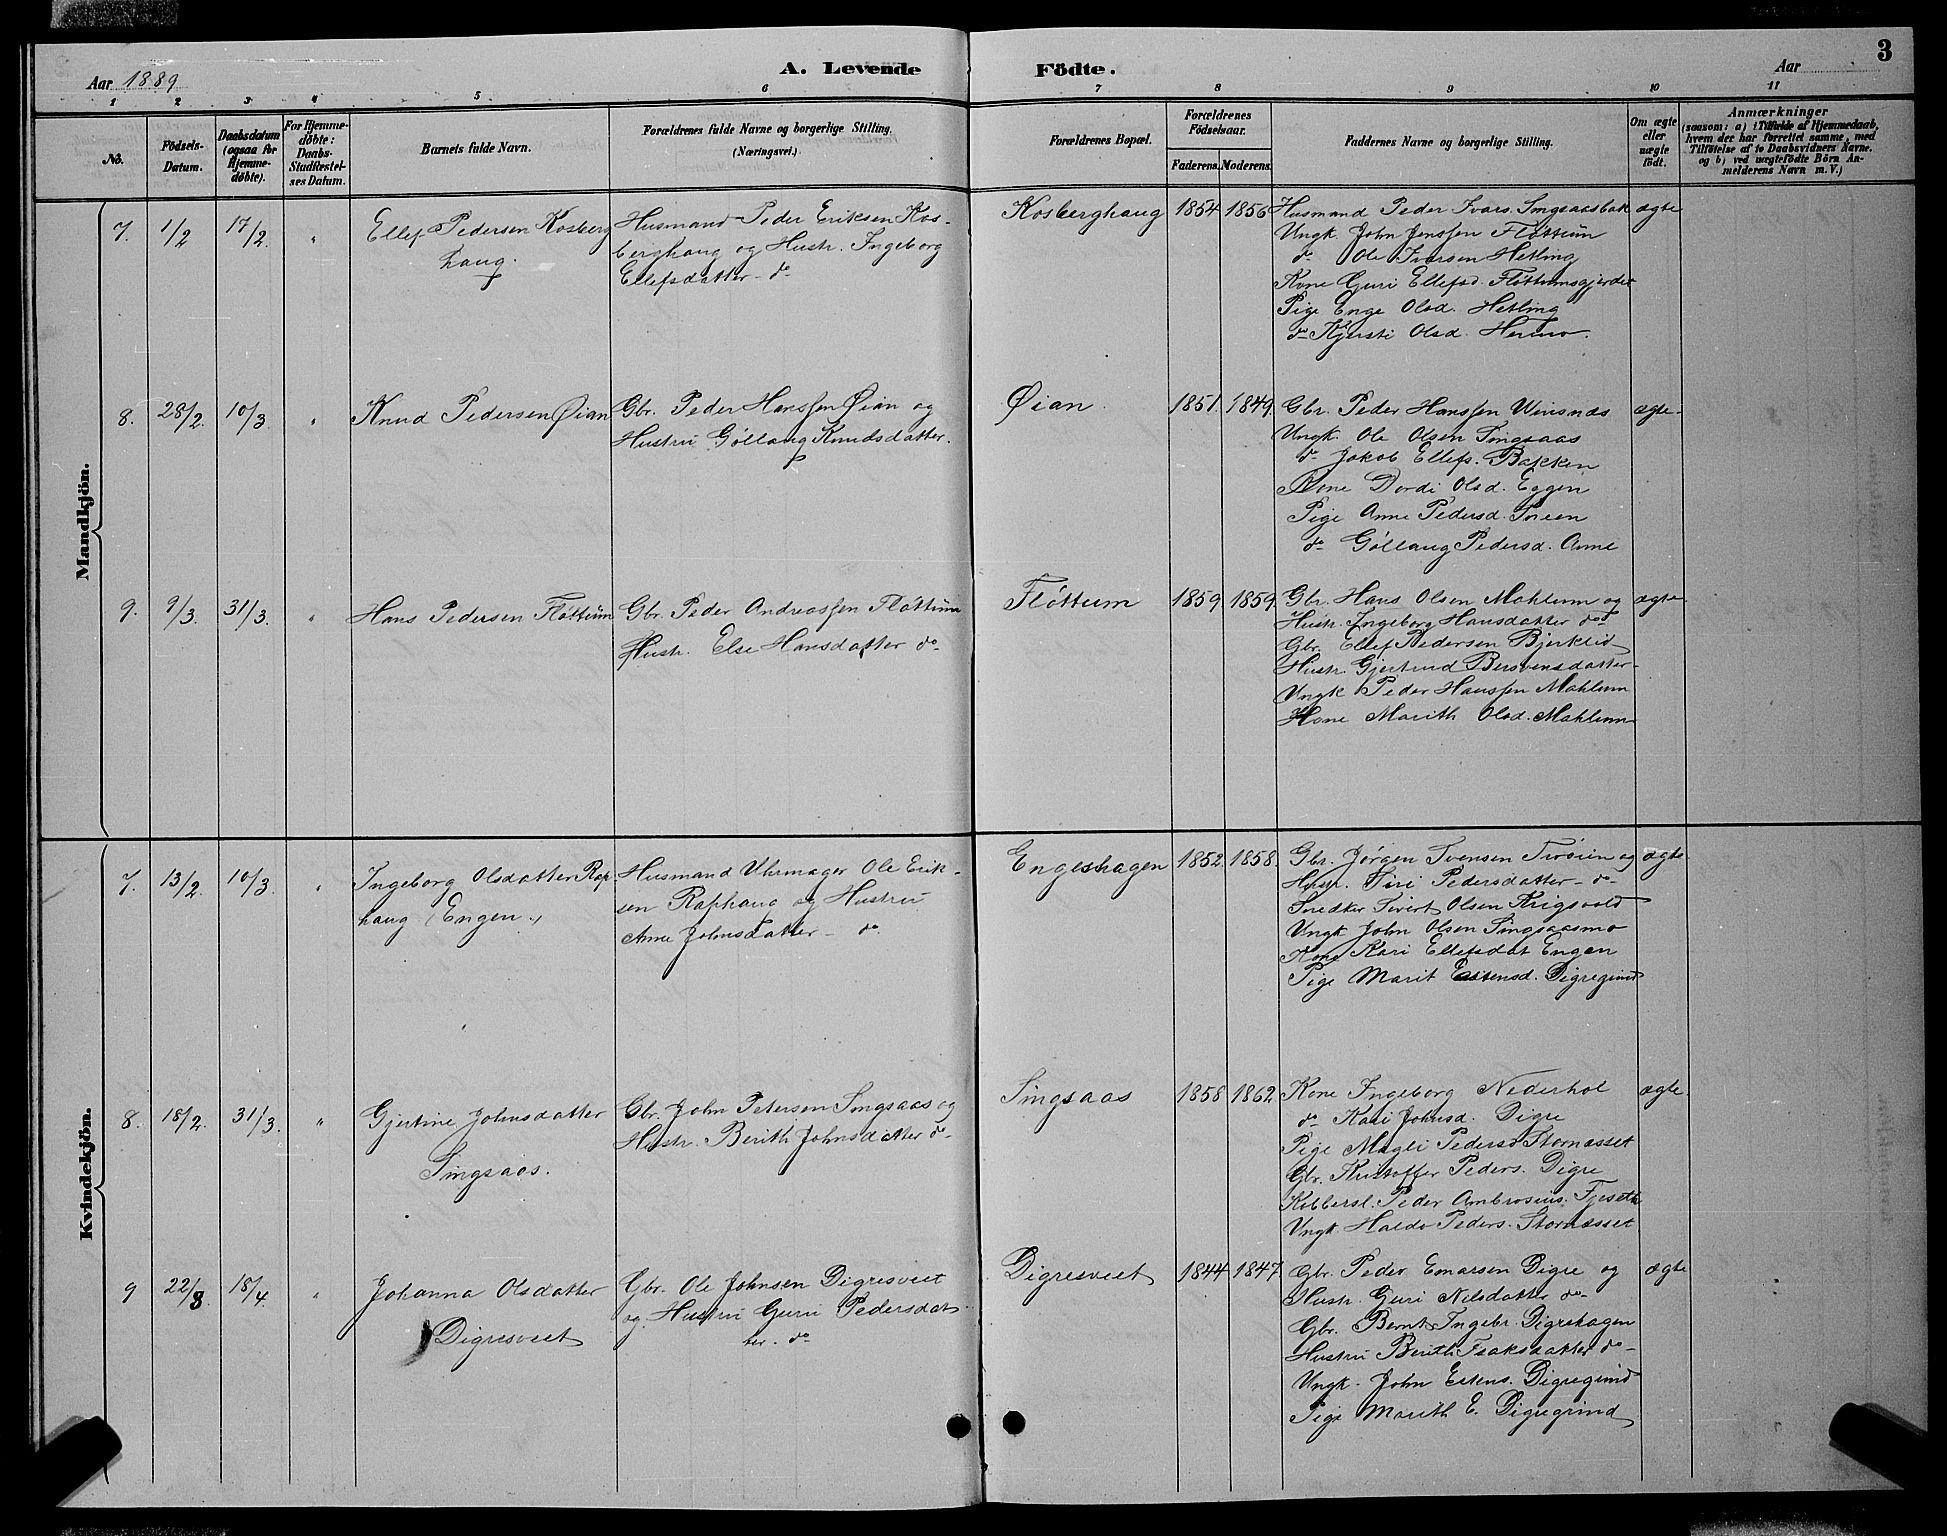 3
Aar 1889
A. Levende Födte.
Aar
1 2 3 4 5 6 7 8 9 10 11
No.
Födsels-
Datum.
Daabsdatum
(ogsaa for
Hjemme-
döbte).
For Hjemme-
döbte:
Daabs-
Stadfæstel-
ses Datum.
Barnets fulde Navn.
Forældrenes fulde Navne og borgerlige Stilling.
(Næringsvei.)
Forældrenes Bopæl.
Forældrenes
Födselsaar.
Faderens.
Moderens.
Faddernes Navne og borgerlige Stilling.
Om ægte
eller
uægte
födt.
Anmærkninger
(saasom: a) i Tilfælde af Hjemmedaab,
hvem der har forrettet samme, med
Tilföielse af to Daabsvidners Navne.
og b) ved uægtefödte Börn An-
melderens Navn m. V.)
Mandkjön.
7. 1/2 17/2. "
Ellef Pedersen Kosberg
haug.
Husmand Peder Eriksen Kos-
berghaug og Hustr. Ingeborg
Ellefsdatter - do
Kosberghaug 1854 1856
Husmand Peder Ivars. Singsaasbak
Ungk. John Jenssen Fløttum
do Ole Ivarsen Hetling
Kone Guri Ellefsd. Fløttumsgjerdet
Pige Enge Olsd. Hetling
do Kjersti Olsd. Hermo.
ægte
8. 28/2. 10/3 "
Knud Pedersen Øian
Gbr. Peder Hanssen Øian og
Hustru Gøllaug Knudsdatter.
Øian. 1851. 1849.
Gbr. Peder Hanssen Winsnæs
Ungk. Ole Olsen Singsaas
do Jakob Ellefs. Bakken
Kone Dordi Olsd. Eggen
Pige Anne Pedersd. Moen
do Gøllaug Pedersd. Aune
ægte.
9. 9/3. 31/3. "
Hans Pedersen Fløttum
Gbr. Peder Andreassen Fløttum
Hustr. Else Hansdatter do
Fløttum 1859 1859.
Gbr. Hans Olsen Mahlum og
Hustr. Ingeborg Hansdatter do
Gbr. Ellef Pedersen Bjerklid
Hustr. Gjertrud Bersvensdatter
Ungk Peder Hanssen Mahlum
Kone Marith Olsd. Mahlum
ægte
Kvindekjön.
7. 13/2. 10/3. "
Ingeborg Olsdatter Rap-
haug (Engen.)
Husmand Uhrmager Ole Erik-
sen Raphaug og Hustru
Anne Johnsdatter - do
Engeshagen 1852. 1858.
Gbr. Jørgen Svensen Troøien og
Hustr. Siri Pedersdatter - do
Snedker Sivert Olsen Krigsvold
Ungk John Olsen Singsaasmo
Kone Kari Ellefsdat Engen
Pige Marit Estensd. Digregrind
ægte
8. 18/2. 31/3. "
Gjertine Johnsdatter
Singsaas.
Gbr. John Petersen Singsaas og
Hustr. Berith Johnsdatter do
Singsaas 1858 1862
Kone Ingeborg Nederhol
do Kari Johnsd. Digre
Pige Magli Pedersd Storrøsset
Gbr. Kristoffer Peders. Digre
Kobbersl. Peder Ambrosius. Fjeseth
Ungk. Haldo Peders. Storrøsset
ægte.
9 22/3 18/4. "
Johanna Olsdatter
Digresveet
Gbr. Ole Johnsen Digresveet
og Hustru Guru Pedersdat-
ter. do
Digresveet 1844 1847
Gbr. Peder Enarsen Digre og
Hustr. Guri Nilsdatter do
Gbr. Bernt Ingebr. Digrehagen
Hustru Berith Isaksdatter do
Ungk. John Estens. Digregrind
Pige Marith E. Digregrind
ægte